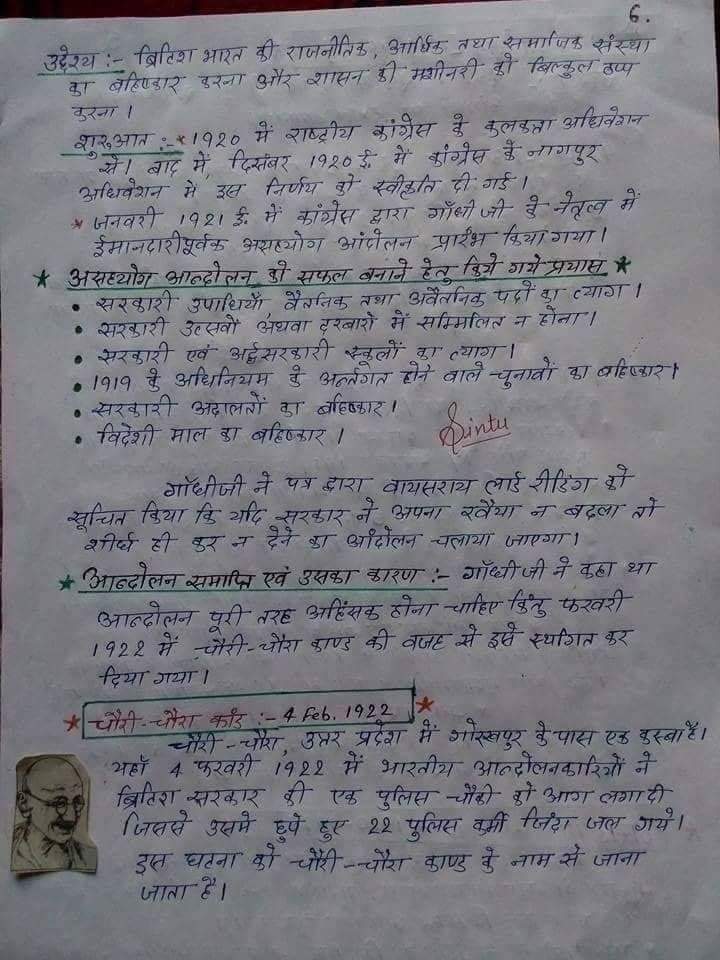 6.
उद्देश्य :- ब्रिटिश भारत की राजनीतिक, आर्थिक तथा सामाजिक संस्था
का बहिष्कार करना और शासन की मशीनरी को बिल्कुल ठप्प
करना ।
शुरुआत :- * 1920 में राष्ट्रीय कांग्रेस के कलकत्ता अधिवेशन
से। बाद में, दिसंबर 1920 ई. में कांग्रेस के नागपुर
अधिवेशन में इस निर्णय को स्वीकृति दी गई ।
* जनवरी 1921 ई. में कांग्रेस द्वारा गाँधी जी के नेतृत्व में
ईमानदारीपूर्वक असहयोग आंदोलन प्रारंभ किया गया।
* असहयोग आन्दोलन को सफल बनाने हेतु किये गये प्रयास *
• सरकारी उपाधियाँ, वैतनिक तथा अवैतनिक पदों का त्याग ।
• सरकारी उत्सवों अथवा दरबारों में सम्मिलित न होना ।
• सरकारी एवं अर्द्धसरकारी स्कूलों का त्याग ।
• 1919 के अधिनियम के अर्न्तगत होने वाले चुनावों का बहिष्कार।
• सरकारी अदालतों का बहिष्कार ।
• विदेशी माल का बहिष्कार ।
Sintu
गाँधीजी ने पत्र द्वारा वायसराय लार्ड रीडिंग को
सूचित किया कि यदि सरकार ने अपना रवैया न बदला तो
शीघ्र ही कर न देने का आंदोलन चलाया जाएगा।
* आन्दोलन समाप्ति एवं उसका कारण :- गाँधीजी ने कहा था
आन्दोलन पूरी तरह अहिंसक होना चाहिए किंतु फरवरी
1922 में चौरी-चौरा काण्ड की वजह से इसे स्थगित कर
दिया गया।
* चौरी-चौरा कांड :- 4 Feb. 1922 *
चौरी-चौरा, उत्तर प्रदेश में गोरखपुर के पास एक कस्बा है।
यहाँ 4 फरवरी 1922 में भारतीय आन्दोलनकारियों ने
ब्रिटिश सरकार की एक पुलिस चौकी को आग लगा दी
जिससे उसमें छुपे हुए 22 पुलिस कर्मी जिंदा जल गये।
इस घटना को चौरी-चौरा काण्ड के नाम से जाना
जाता है।